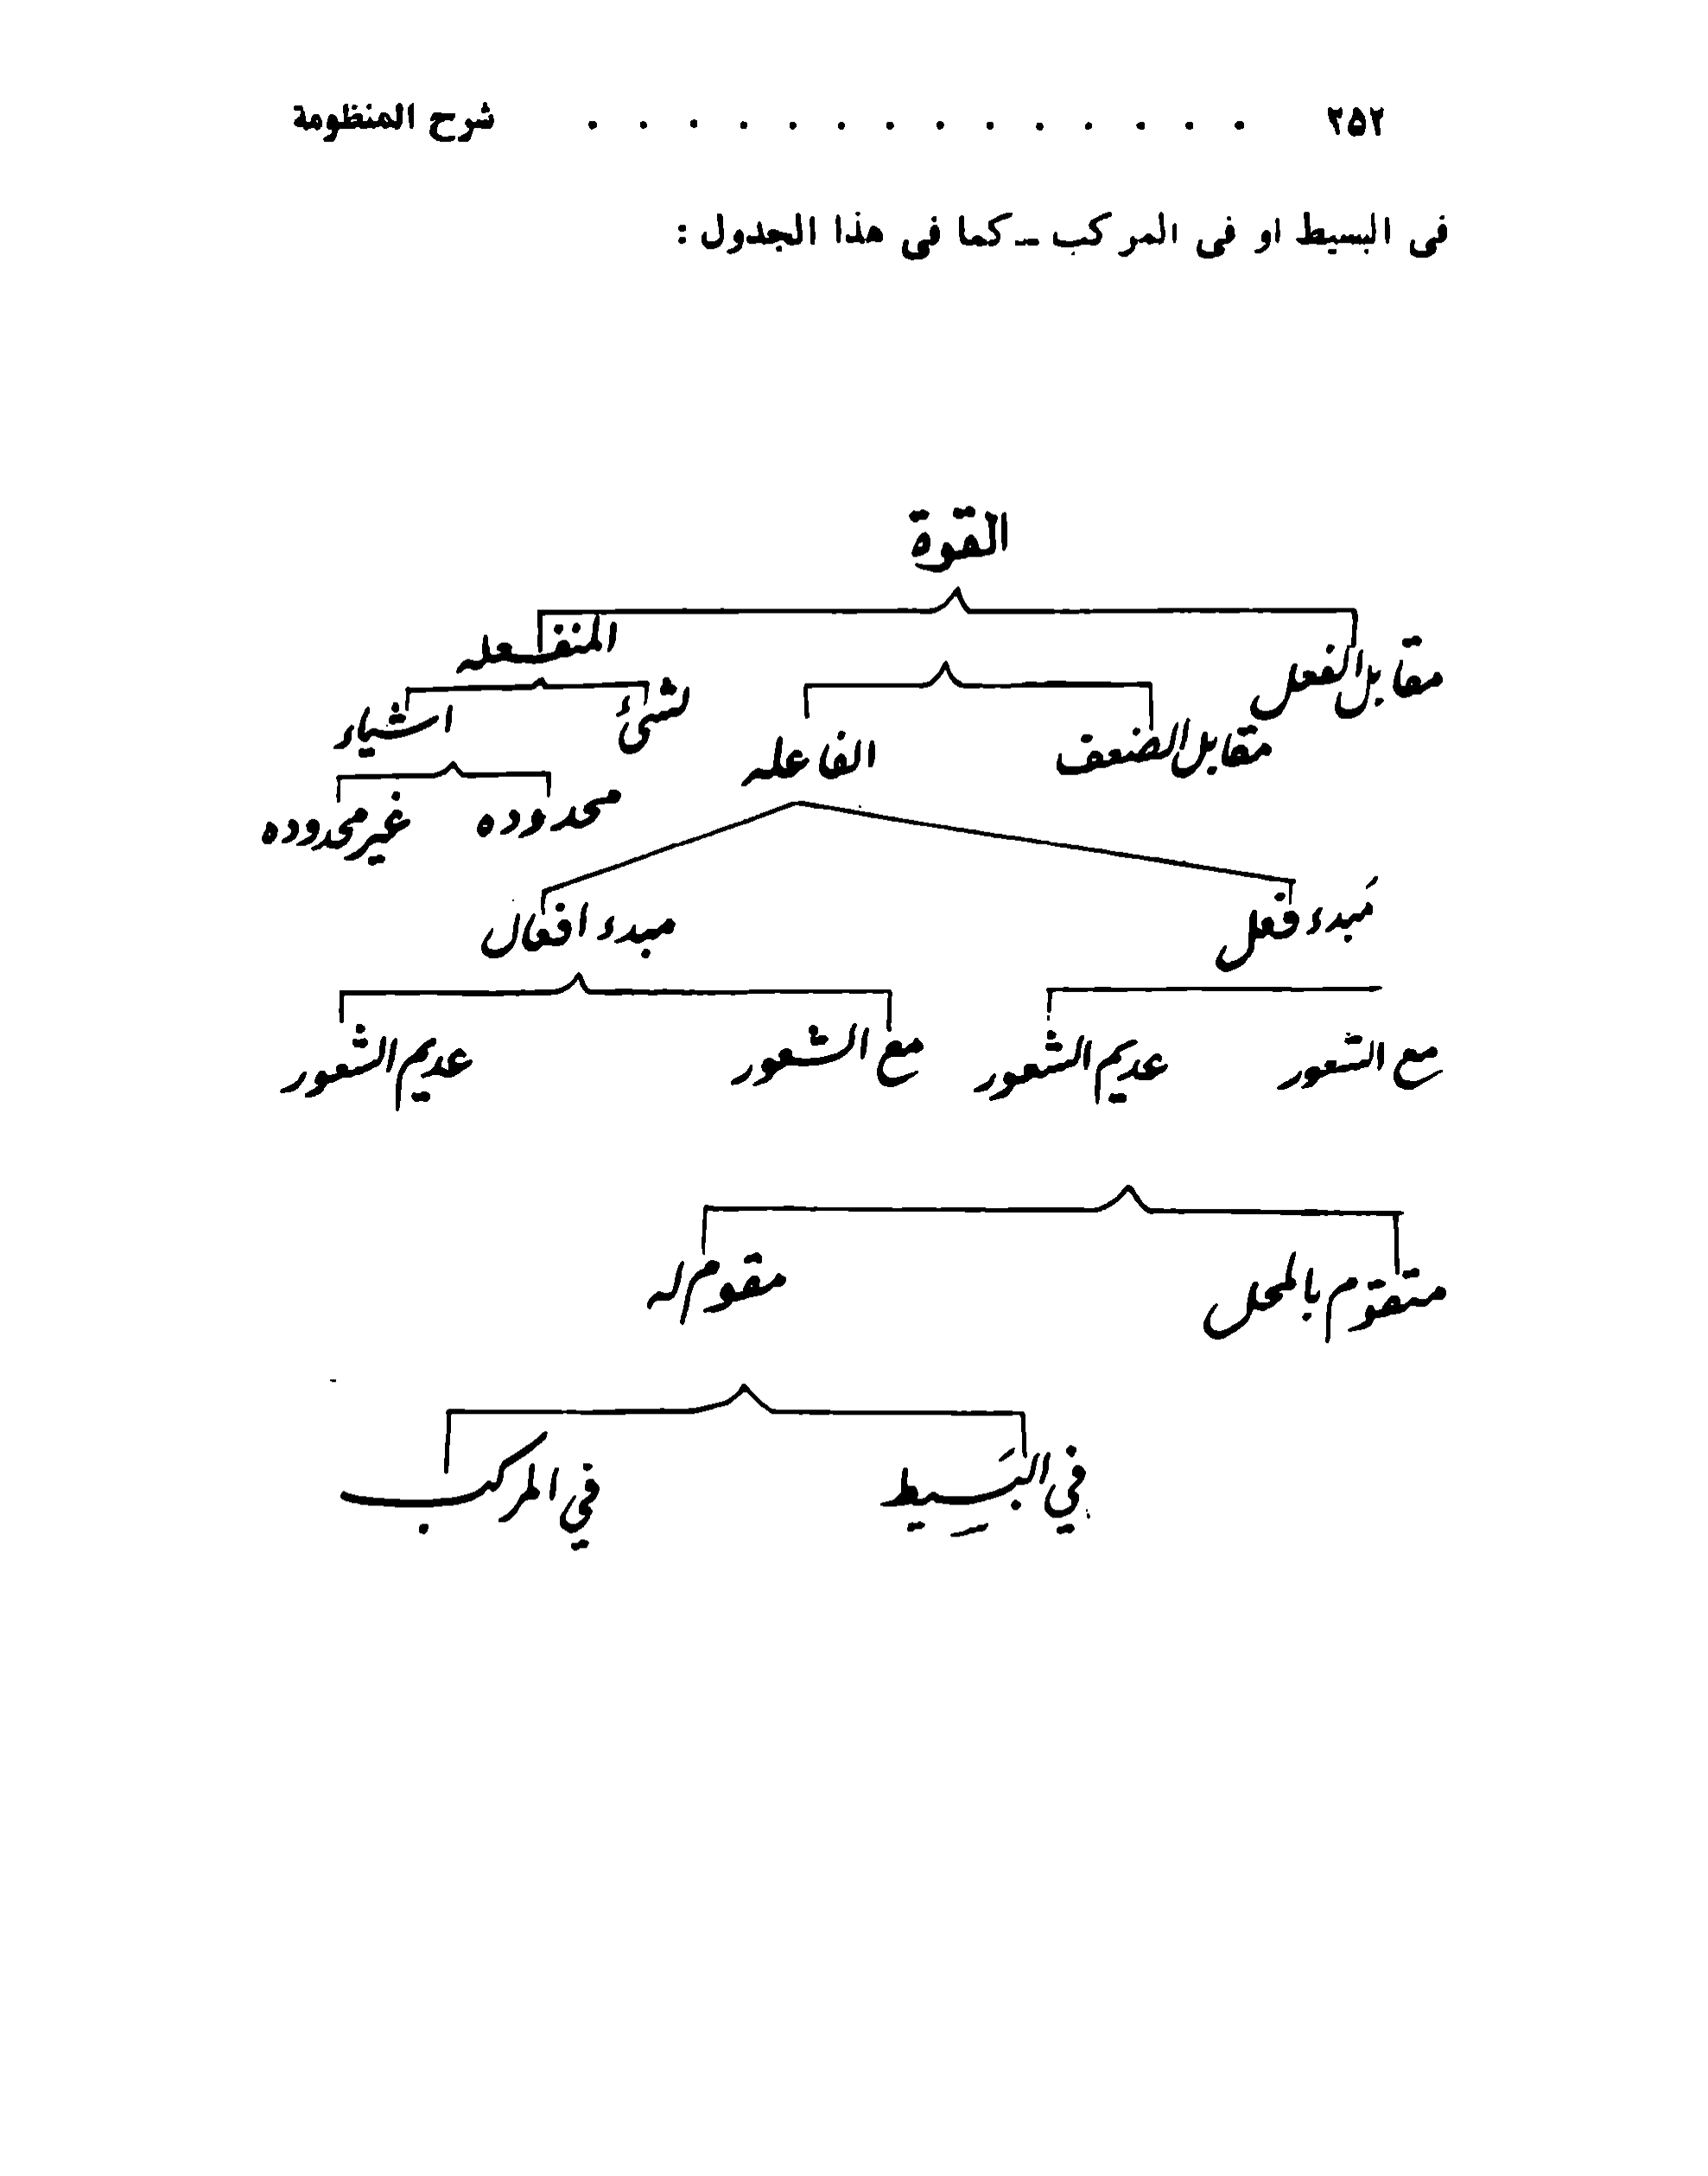 ٢٥٢ . . . . . . . . . . . . . . شرح المنظومة
فى البسيط او فى المركب ــ كما فى هذا الجدول :
القوة
مقابل الفعل المنفعله
مقابل الضعف الفاعله لشئ اشياء
محدوده غير محدوده
مَبدء فعل مبدء افعال
مع الشعور عديم الشعور مع الشعور عديم الشعور
متقوم بالمحل مقوم له
في البَسيط في المركب